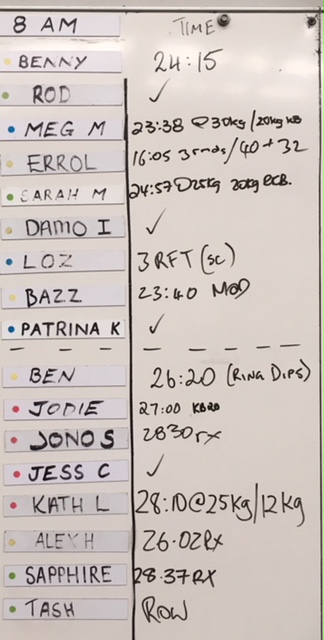 8 AM TIME
BENNY 24:15
ROD ✓
MEG M 23:38 @30kg/20kg KB
ERROL 16:05 3rnds/40+32
SARAH M 24:57 @25kg 20kg
DAMO I ✓
LOZ 3RFT (sc)
BAZZ 23:40 MOD
PATRINA K ✓
BEN 26:20 (RING DIPS)
JODIE 27:00
JONO S 2830 rx
JESS C ✓
KATH L 28:10@25kg/12kg
ALEX H 26.02RX
SAPPHIRE 28.37RX
TASH ROW